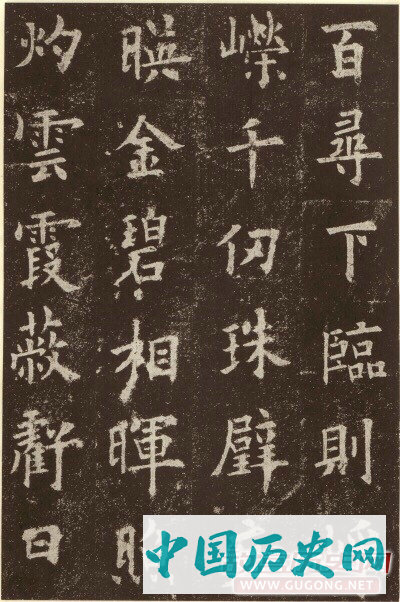 百尋下臨則
嶸千仞珠璧
暎金碧相暉照
灼雲霞蔽虧日
中国历史网
WWW.GUGONG.NET